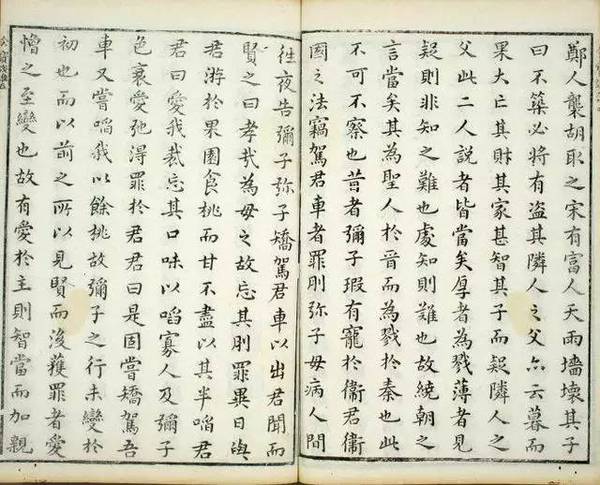 鄭人襲胡取之宋有富人天雨墻壞其子
曰不築必將有盗其隣人之父亦云暮而
果大亡其財其家甚智其子而疑隣人之
父此二人説者皆當矣厚者為戮薄者見
疑則非知之難也處知則難也故繞朝之
言當矣其為聖人於晉而為戮於秦也此
不可不察也昔者彌子瑕有寵於衞君衞
國之法竊駕君車者罪刖弥子母病人間
往夜告彌子弥子矯駕君車以出君聞而
賢之曰孝哉為母之故忘其刖罪異日與
君游於果園食桃而甘不盡以其半啗君
君曰愛我哉忘其口味以啗寡人及彌子
色衰愛弛得罪於君君曰是固嘗矯駕吾
車又嘗啗我以餘桃故彌子之行未變於
初也而以前之所以見賢而後獲罪者愛
憎之至變也故有愛於主則智當而加親